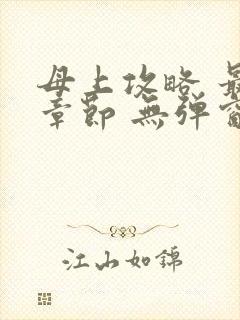 母上攻略 最
章節 無彈窗
江山如錦